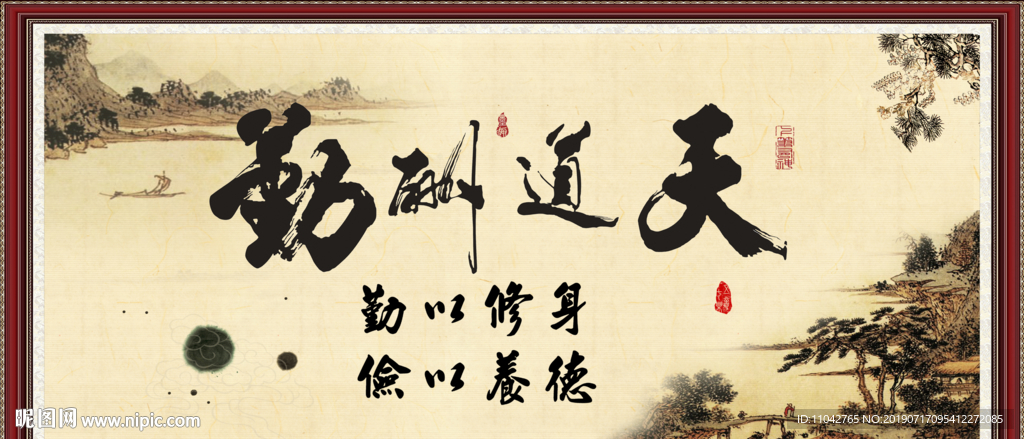 天道酬勤
勤以修身
儉以養德
昵图网 www.nipic.com
ID:11042765 NO:20190717095412272085